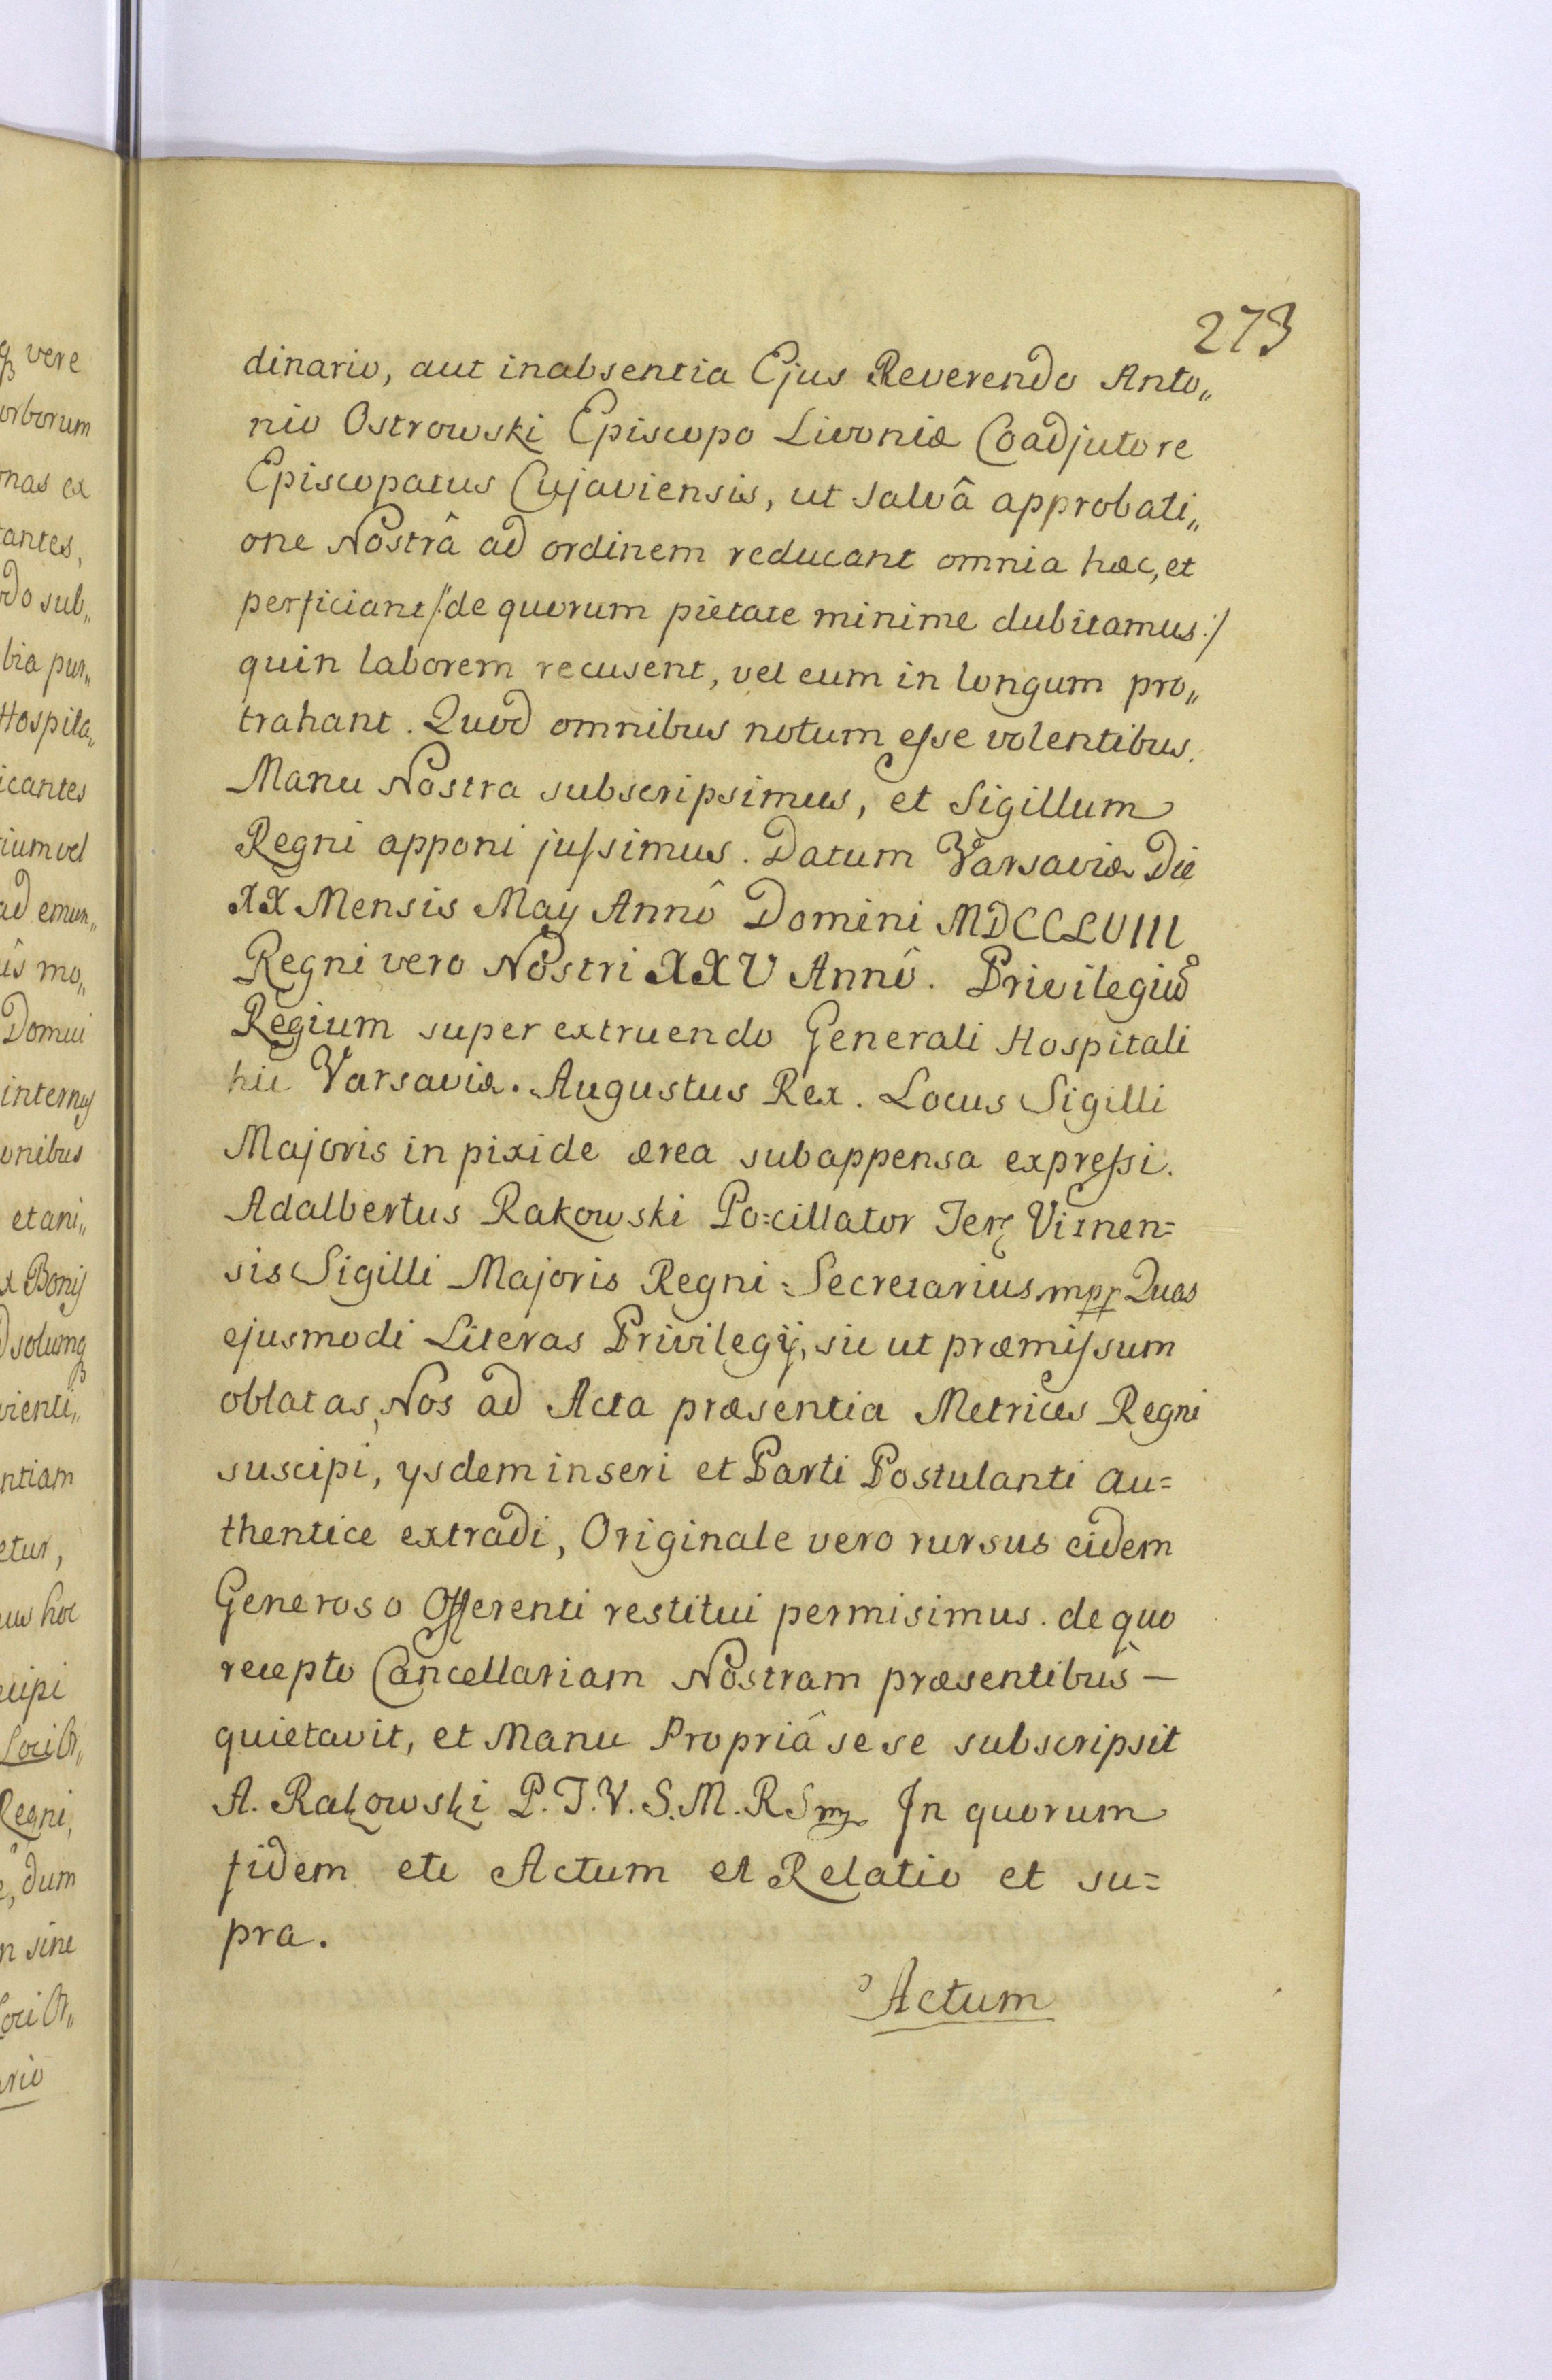 273
dinario, aut in absentia Ejus Reverendo Anto„
nio Ostrowski Episcopo Livoniæ Coadjutore
Episcopatus Cujaviensis, ut salvâ approbati„
one Nostrâ ad ordinem reducant omnia hæc, et
perficiant /:de quorum pietate minime dubitamus:/
quin laborem recusent, vel eum in longum pro„
trahant. Quod omnibus notum esse volentibus.
Manu Nostra subscripsimus, et Sigillum
Regni apponi jussimus. Datum Varsaviæ Die
XX Mensis May Annô Domini MDCCLVIII
Regni vero Nostri XXV Annô. Privilegiũ
Regium super extruendo Generali Hospitali
hic Varsaviæ. Augustus Rex. Locus Sigilli
Majoris in pixide ærea subappensa expressi.
Adalbertus Rakowski Po=cillator Terræ Visnen=
sis Sigilli Majoris Regni Secretarius mpp Quas
ejusmodi Literas Privilegij, sic ut præmissum
oblatas, Nos ad Acta præsentia Metrices Regni
suscipi, ysdem inseri et Parti Postulanti au=
thentice extradi, Originale vero rursus eidem
Generoso Offerenti restitui permisimus. de quo
recepto Cancellariam Nostram præsentibus —
quietavit, et Manu Propriâ sese subscripsit
A. Rakowski P. T. V. S. M. R S mp In quorum
fidem etc Actum et Relatio et su=
pra.
Actum
vere
orborum
nas ex
tantes,
do sub„
bia pur„
Hospita„
icantes
rium vel
ad emun„
mo„
Domui
internis
onibus
et ani„
x Bonij
solumq
vienti„
ntiam
etur,
us hoc
cipi
Loci Or„
Regni,
dum
n sine
Loci Or„
ario